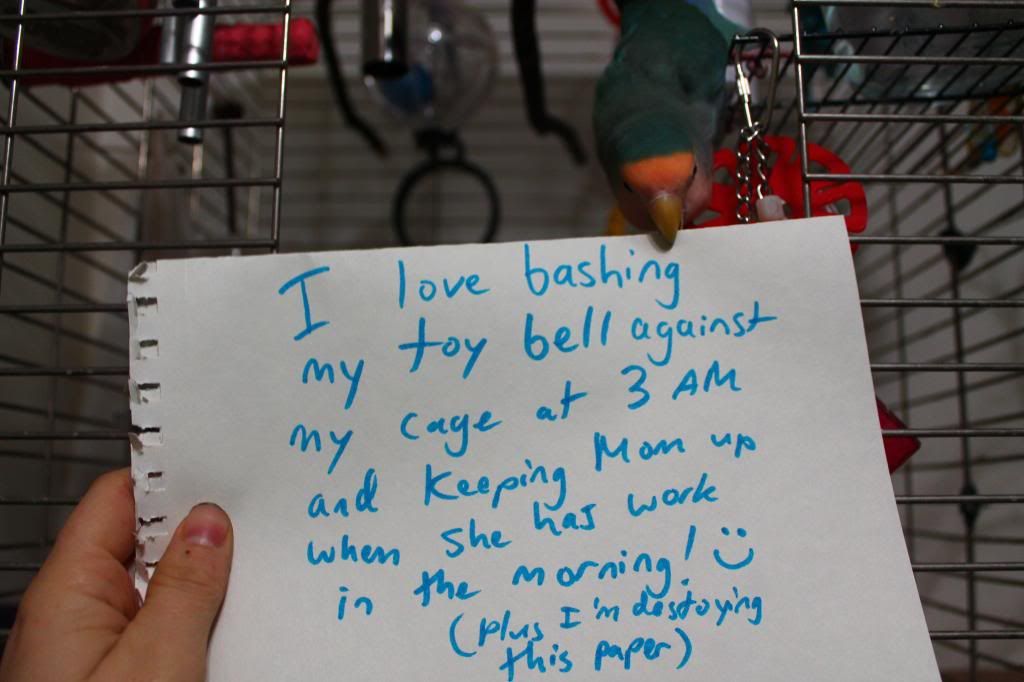 I love bashing
my toy bell against
my cage at 3 AM
and keeping Mom up
when she has work
in the morning! :)
(plus I'm destoying
this paper)